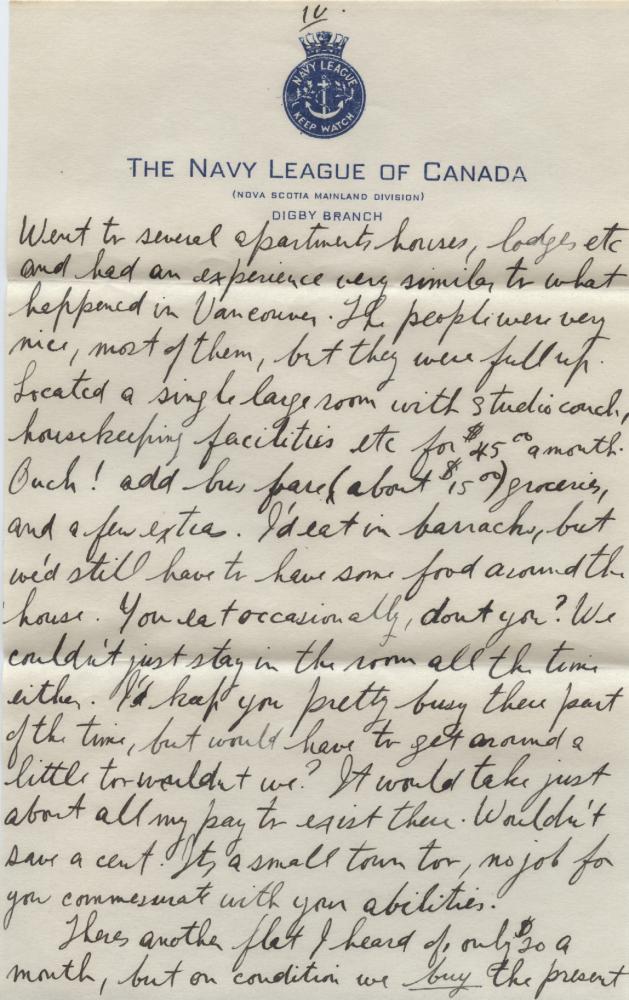 IV.
NAVY LEAGUE
KEEP WATCH
THE NAVY LEAGUE OF CANADA
(NOVA SCOTIA MAINLAND DIVISION)
DIGBY BRANCH
Went to several apartments houses, lodges etc
and had an experience very similar to what
happened in Vancouver. The people were very
nice, most of them, but they were full up.
Located a single large room with studio couch,
housekeeping facilities etc for $45.00 a month.
Ouch! add bus fare (about $15.00) groceries,
and a few extras. I'd eat in barracks, but
we'd still have to have some food around the
house. You eat occasionally, dont you? We
couldn't just stay in the room all the time
either. I'd keep you pretty busy there part
of the time, but would have to get around a
little too wouldn't we? It would take just
about all my pay to exist there. Wouldn't
save a cent. Its a small town too, no job for
you commesurate with your abilities.
Theres another flat I heard of, only $20 a
month, but on condition we buy the present